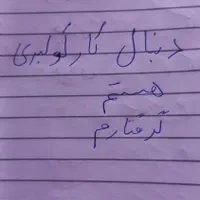 دنبال کارگولبری
هستم
گرفتارم